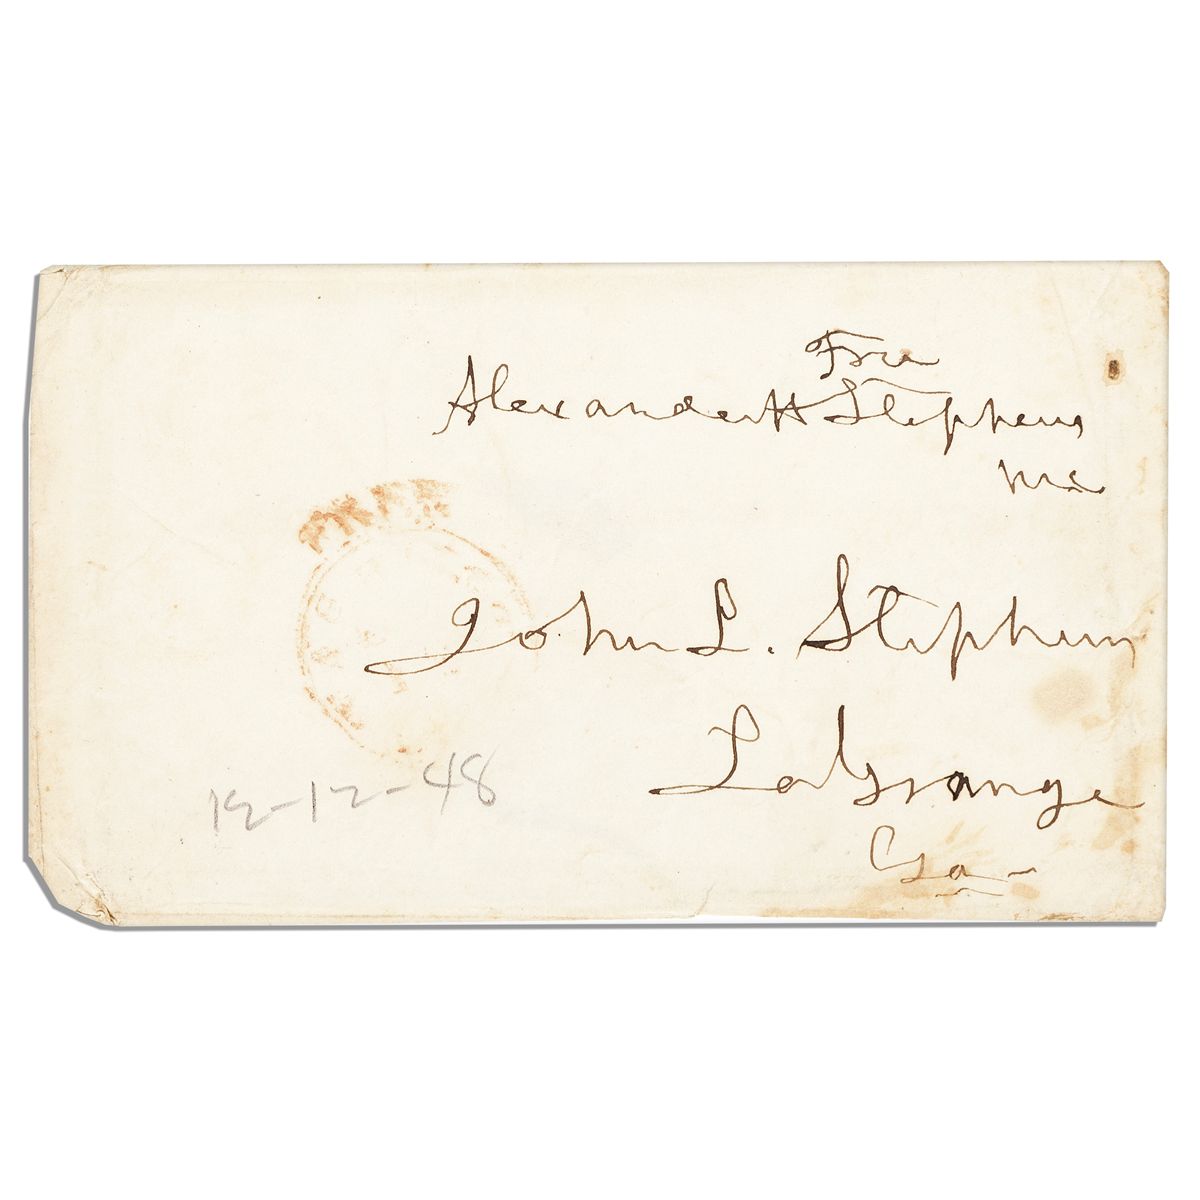 Free
Alexander H Stephens
MC
FREE
John L. Stephens
LaGrange
Ga-
12-12-48